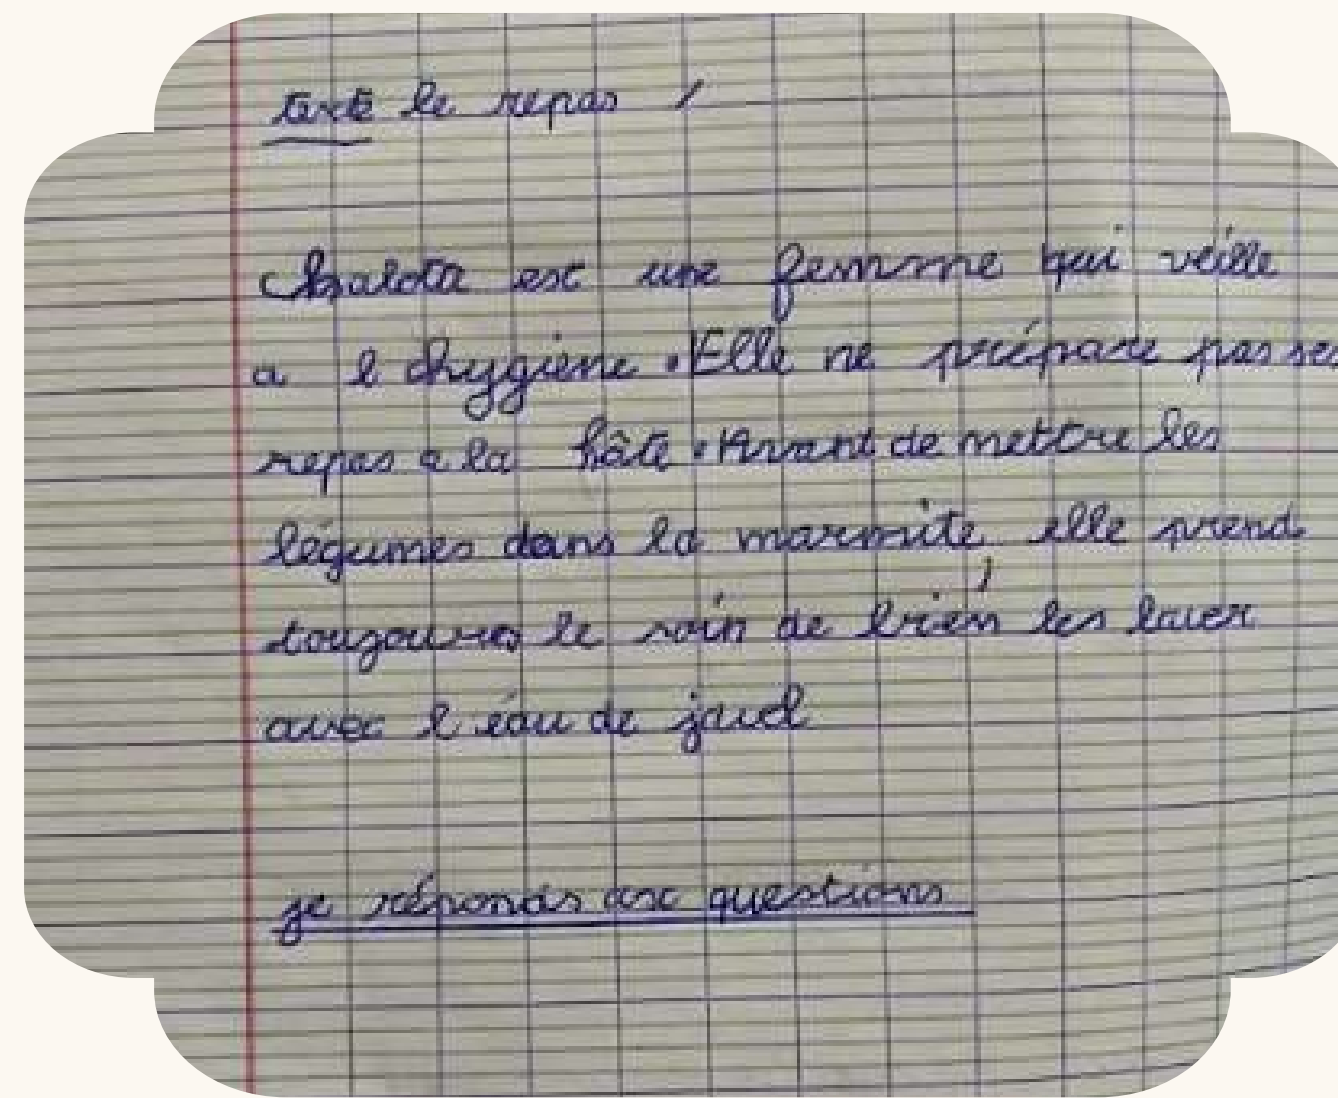 texte le repas
Chalota est une femme qui veille
a l dhygiène . Elle ne prépare pas ses
repas a la hâte . Avant de mettre les
légumes dans la marmite, elle prend
toujours le soin de bien les laver
avec l éau de javel
je réponds aux questions